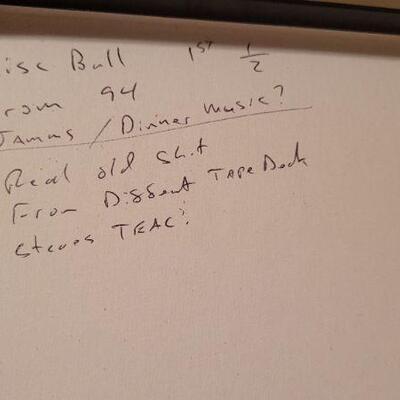 isc Bull 1ST 1/2
rom 94
Jamms / Dinner Music?
Real old shit
From Different Tape Deck
Steves TEAC?